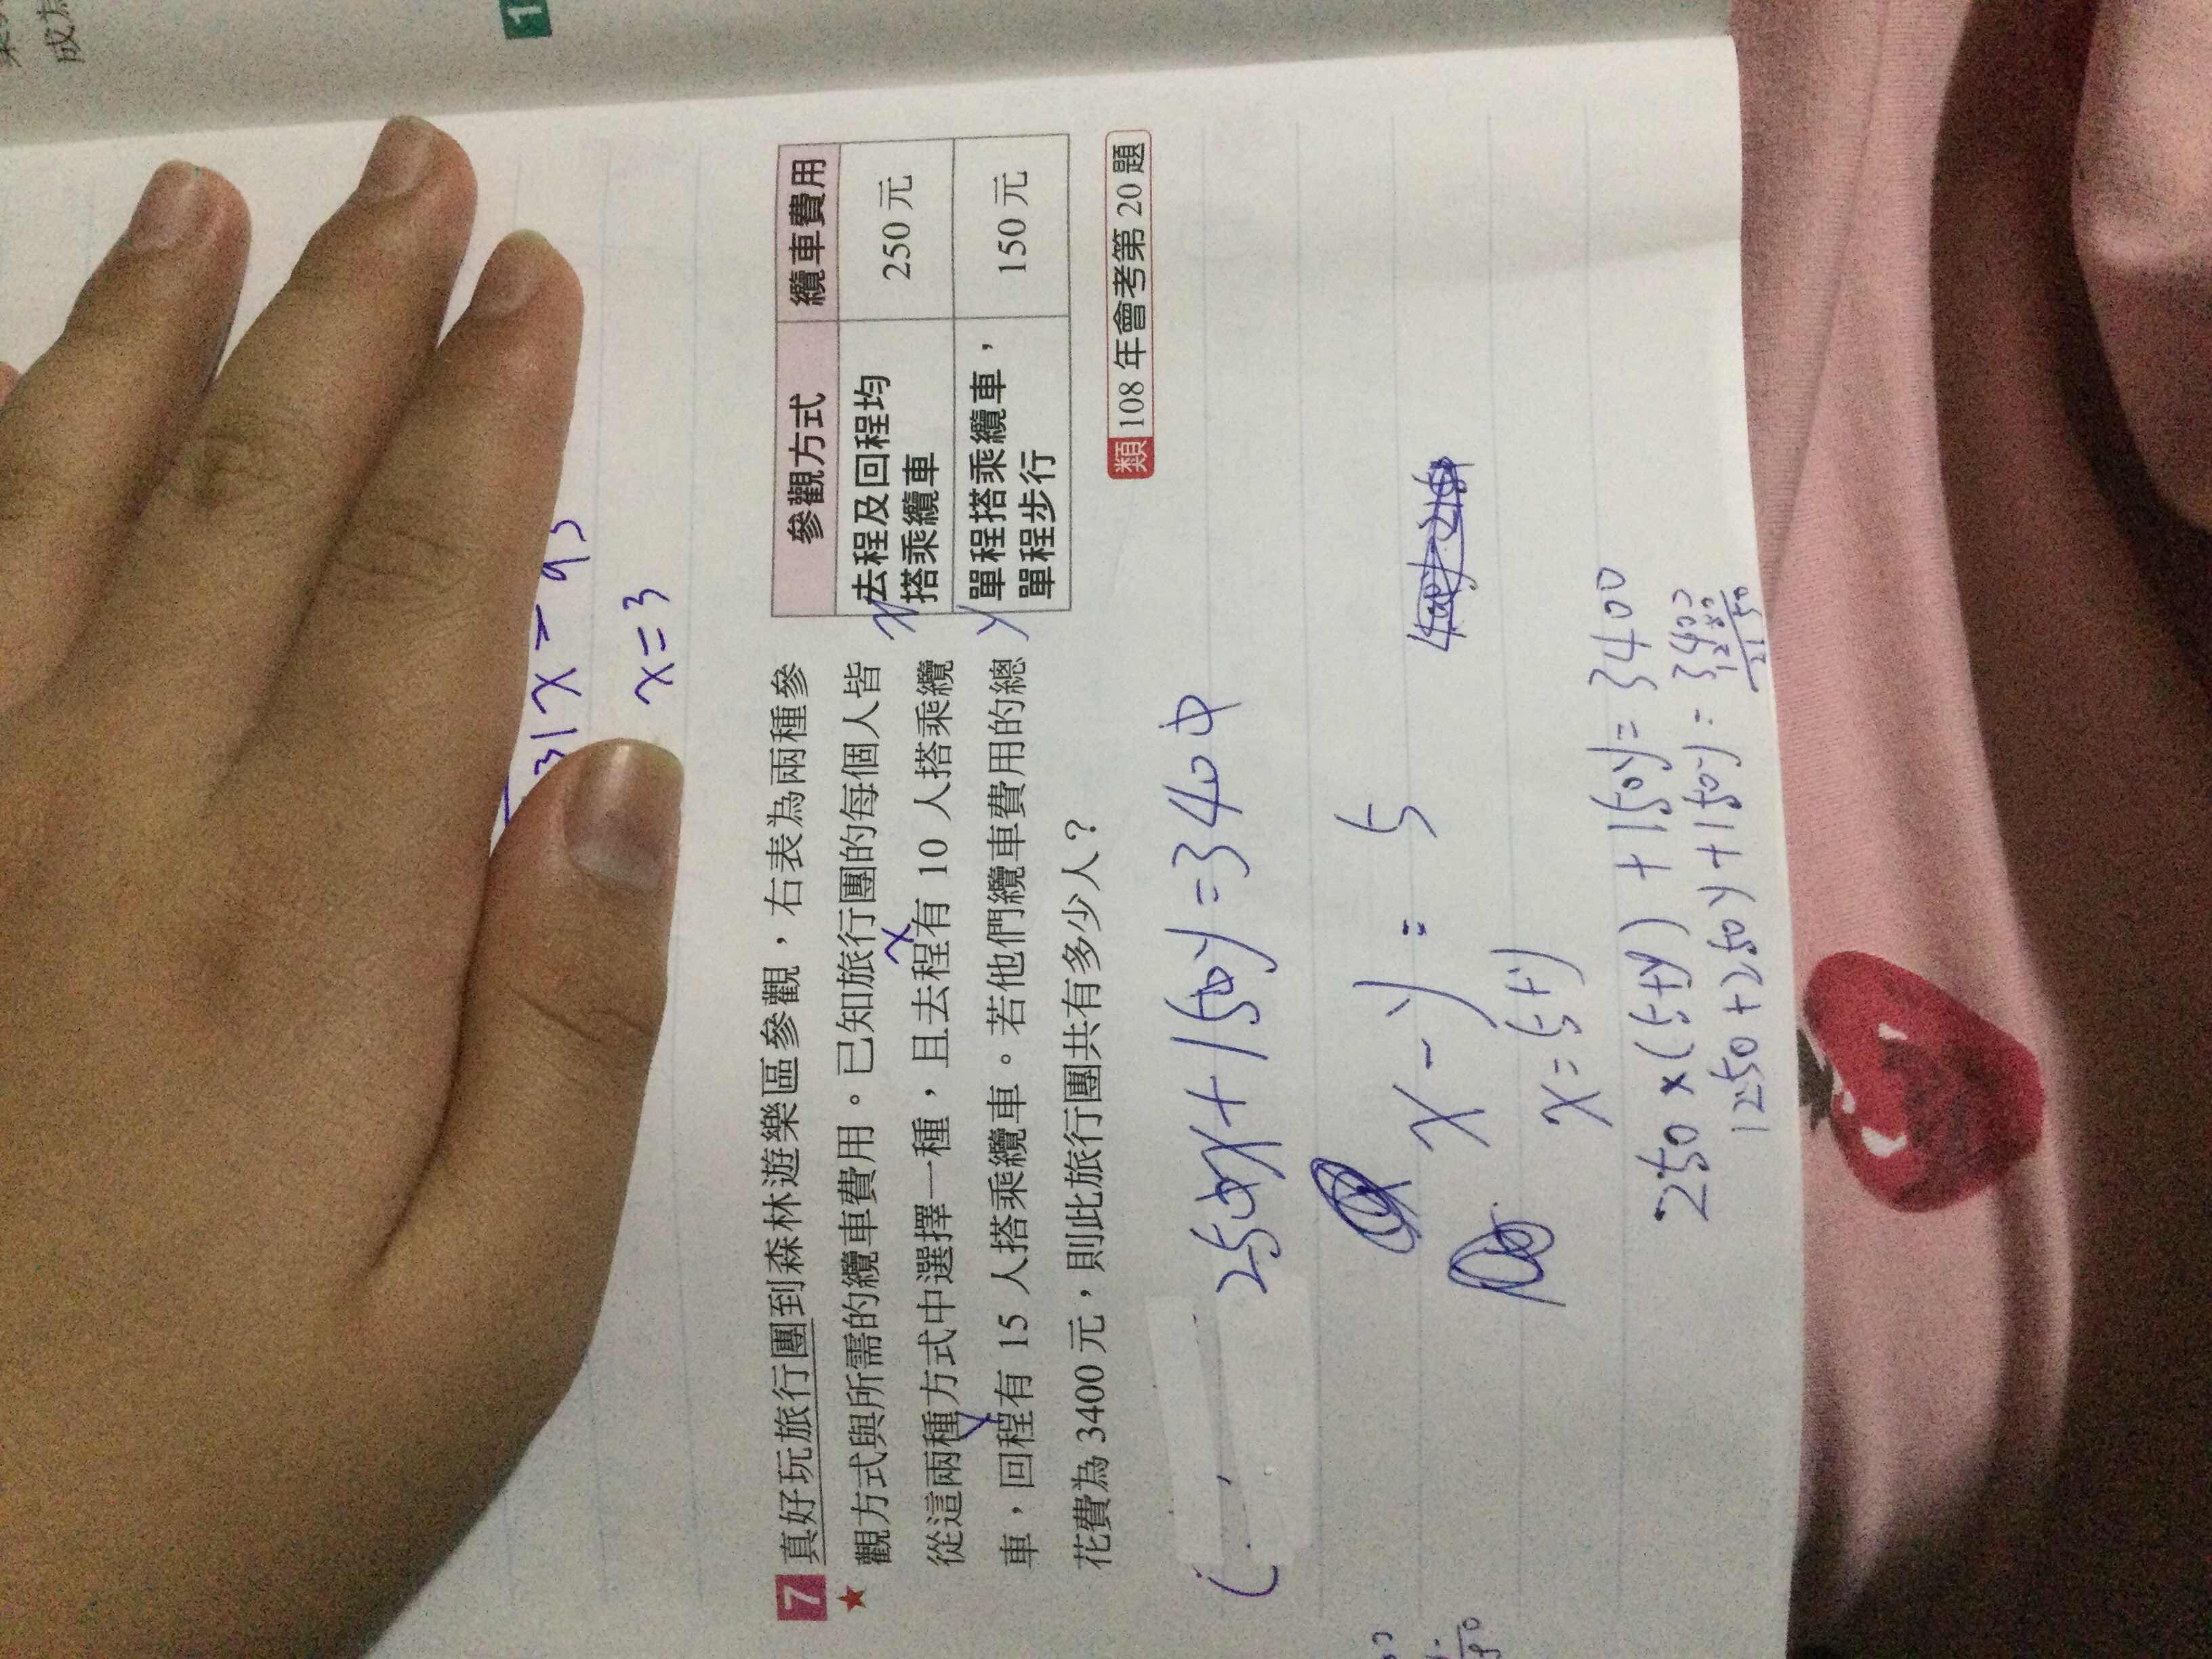 1
成
31x=93
x=3
7 真好玩旅行團到森林遊樂區參觀，右表為兩種參
★ 觀方式與所需的纜車費用。已知旅行團的每個人皆
從這兩種方式中選擇一種，且去程有 10 人搭乘纜
車，回程有 15 人搭乘纜車。若他們纜車費用的總
花費為 3400 元，則此旅行團共有多少人？
x
y
參觀方式 纜車費用
x 去程及回程均 250 元
搭乘纜車
y 單程搭乘纜車， 150 元
單程步行
類 108 年會考第 20 題
250x+150y=3400
x-y=5
x=5+y
250×(5+y)+150y=3400
1250+250y+150y=3400
1250
2150